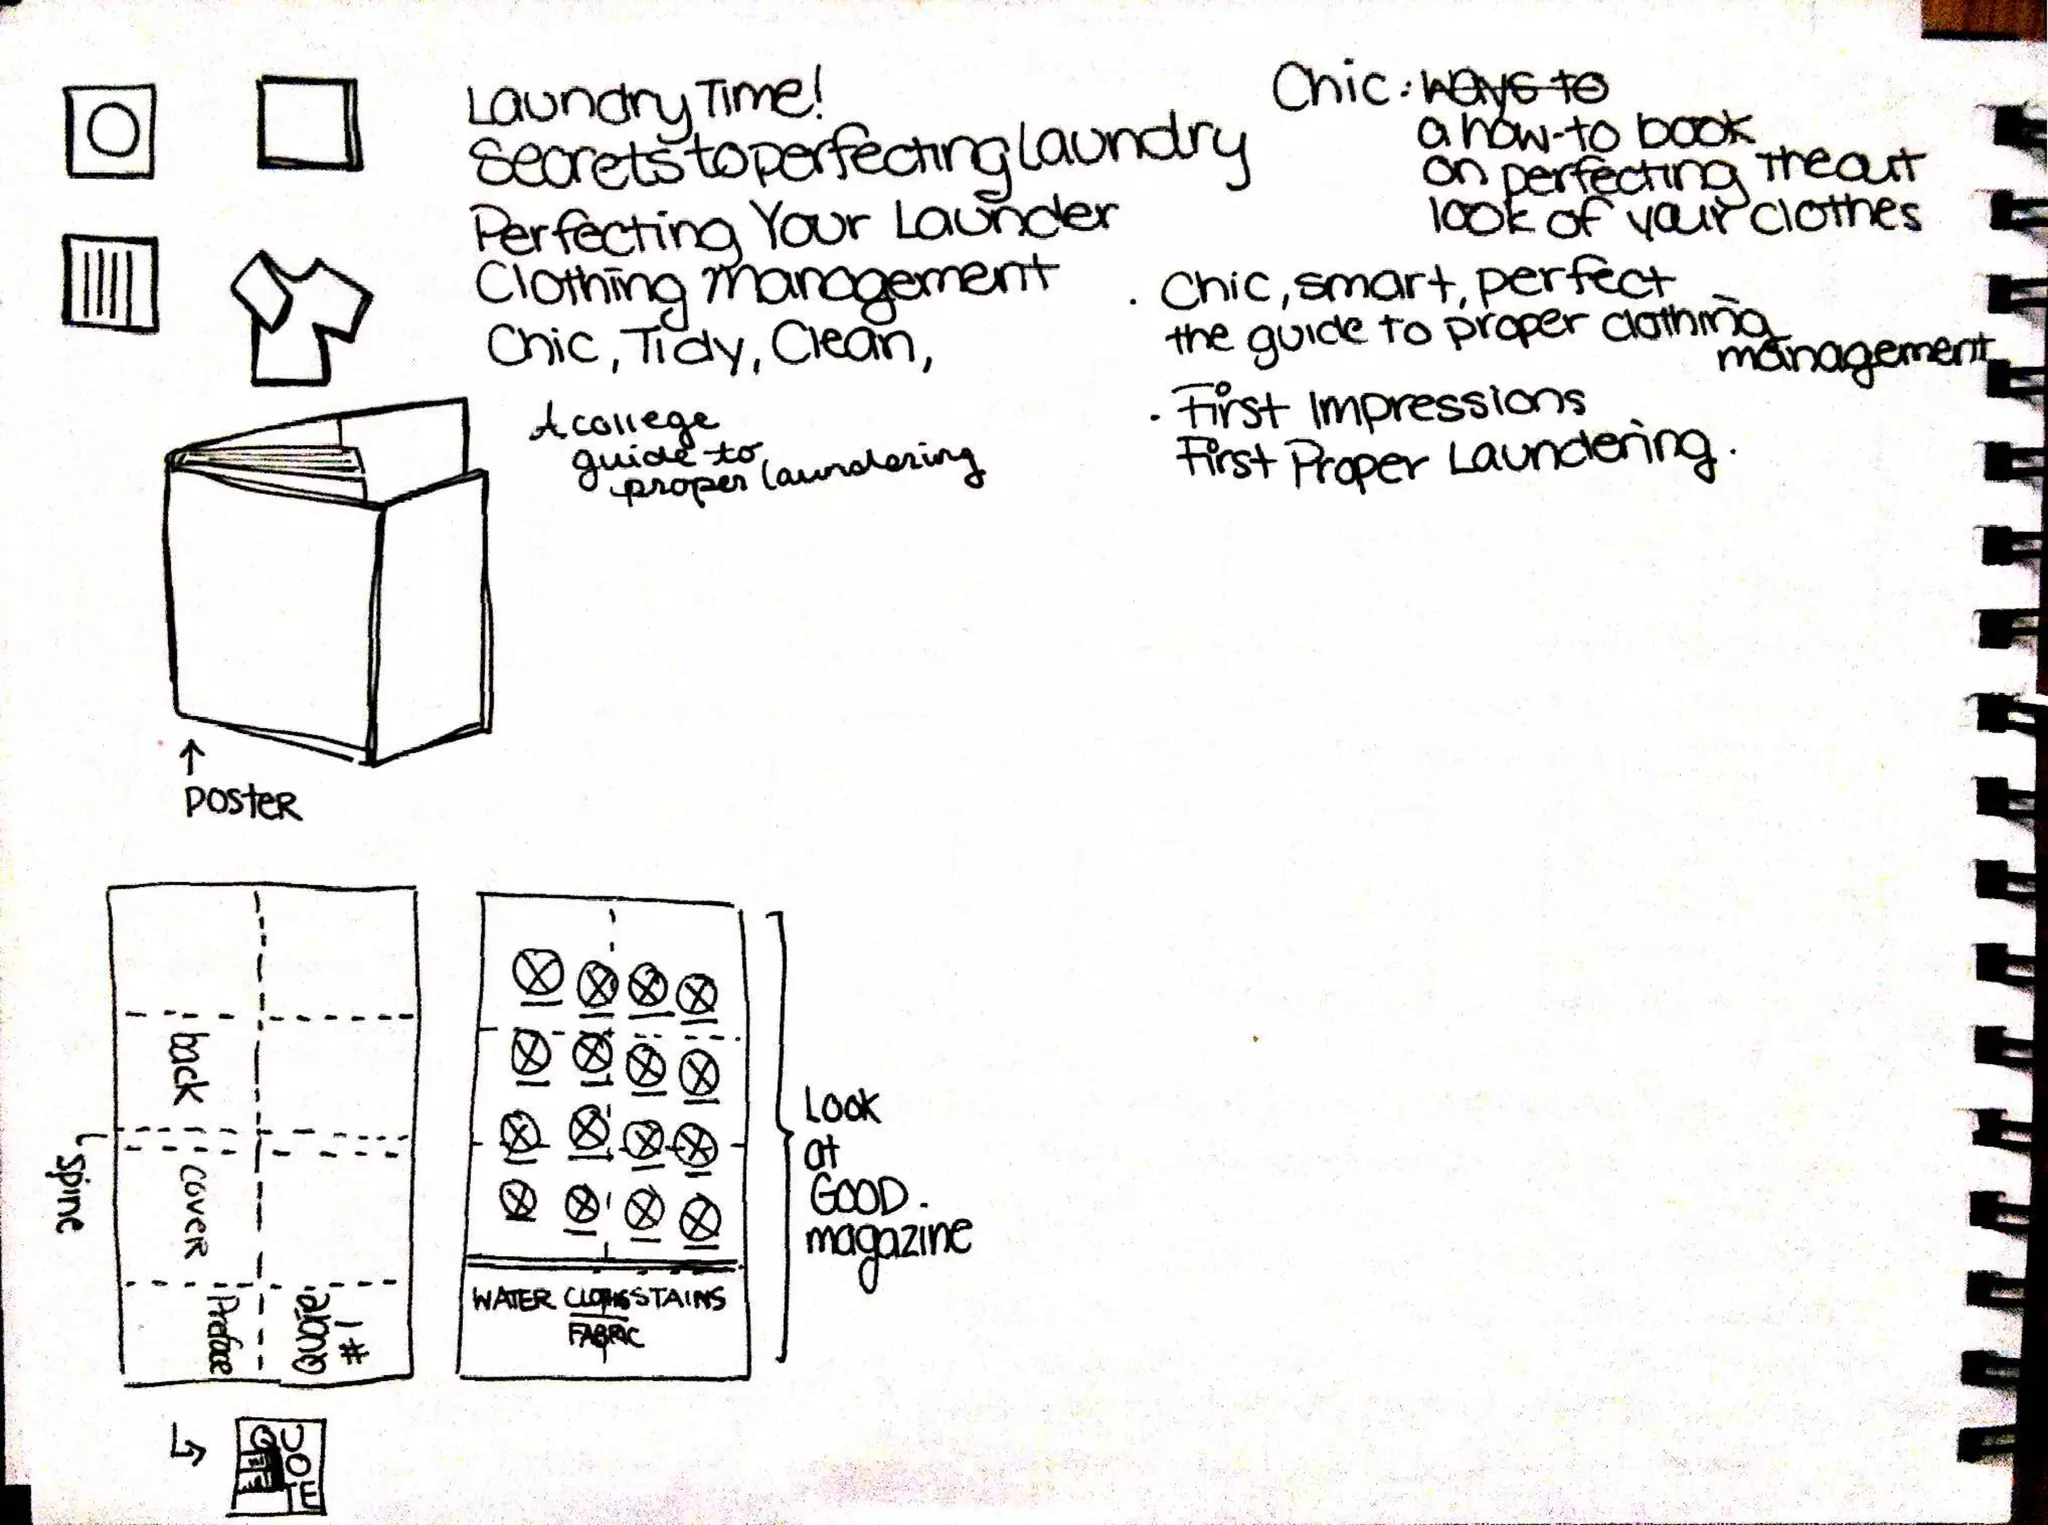 Laundry Time!
Secrets to perfecting Laundry
Perfecting Your Launder
Clothing Management
Chic, Tidy, Clean,
A college
guide to
proper laundering
Chic: ways to
a how-to book
on perfecting the out
look of your clothes
. Chic, smart, perfect
the guide to proper clothing
management
. First Impressions
First Proper Laundering.
↑
POSTER
back
cover
spine
Preface
quote
#1
WATER CLOTHES STAINS
FABRIC
Look
at
GOOD.
magazine
QUOTE